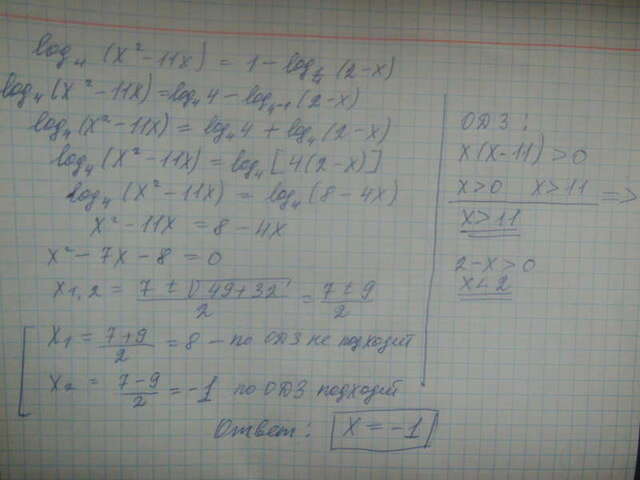 log₄ (x² - 11x) = 1 - log_{1/4} (2-x)
log₄ (x² - 11x) = log₄ 4 - log_{4⁻¹} (2-x)
log₄ (x² - 11x) = log₄ 4 + log₄ (2-x)
log₄ (x² - 11x) = log₄ [4(2-x)]
log₄ (x² - 11x) = log₄ (8 - 4x)
x² - 11x = 8 - 4x
x² - 7x - 8 = 0
x1,2 = (7 ± √49+32)/2 = (7 ± 9)/2
x₁ = (7+9)/2 = 8 - по ОДЗ не подходит
x₂ = (7-9)/2 = -1 по ОДЗ подходит
Ответ: x = -1
ОДЗ:
x(x-11) > 0
x>0 x>11 =>
x>11
2-x>0
x<2